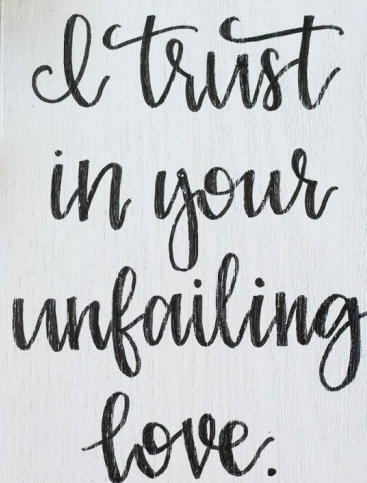 I trust
in your
unfailing
love.